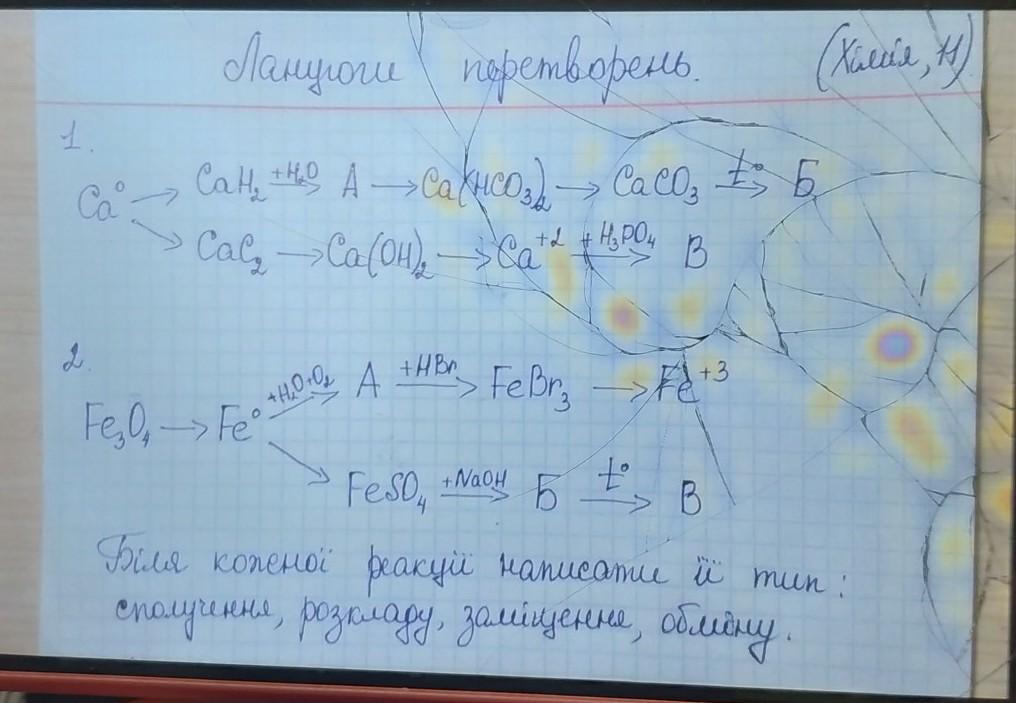 Ланцюги перетворень. (Хімія, Н)
1.
Ca⁰ → CaH₂ +H₂O → А → Ca(HCO₃)₂ → CaCO₃ t° → Б
→ CaC₂ → Ca(OH)₂ → Ca⁺² +H₃PO₄ → В
2.
Fe₃O₄ → Fe⁰ +H₂O+O₂ → А +HBr → FeBr₃ → Fe⁺³
→ FeSO₄ +NaOH → Б t° → В
Біля коженої реакції написати її тип:
сполучення, розкладу, заміщення, обміну.